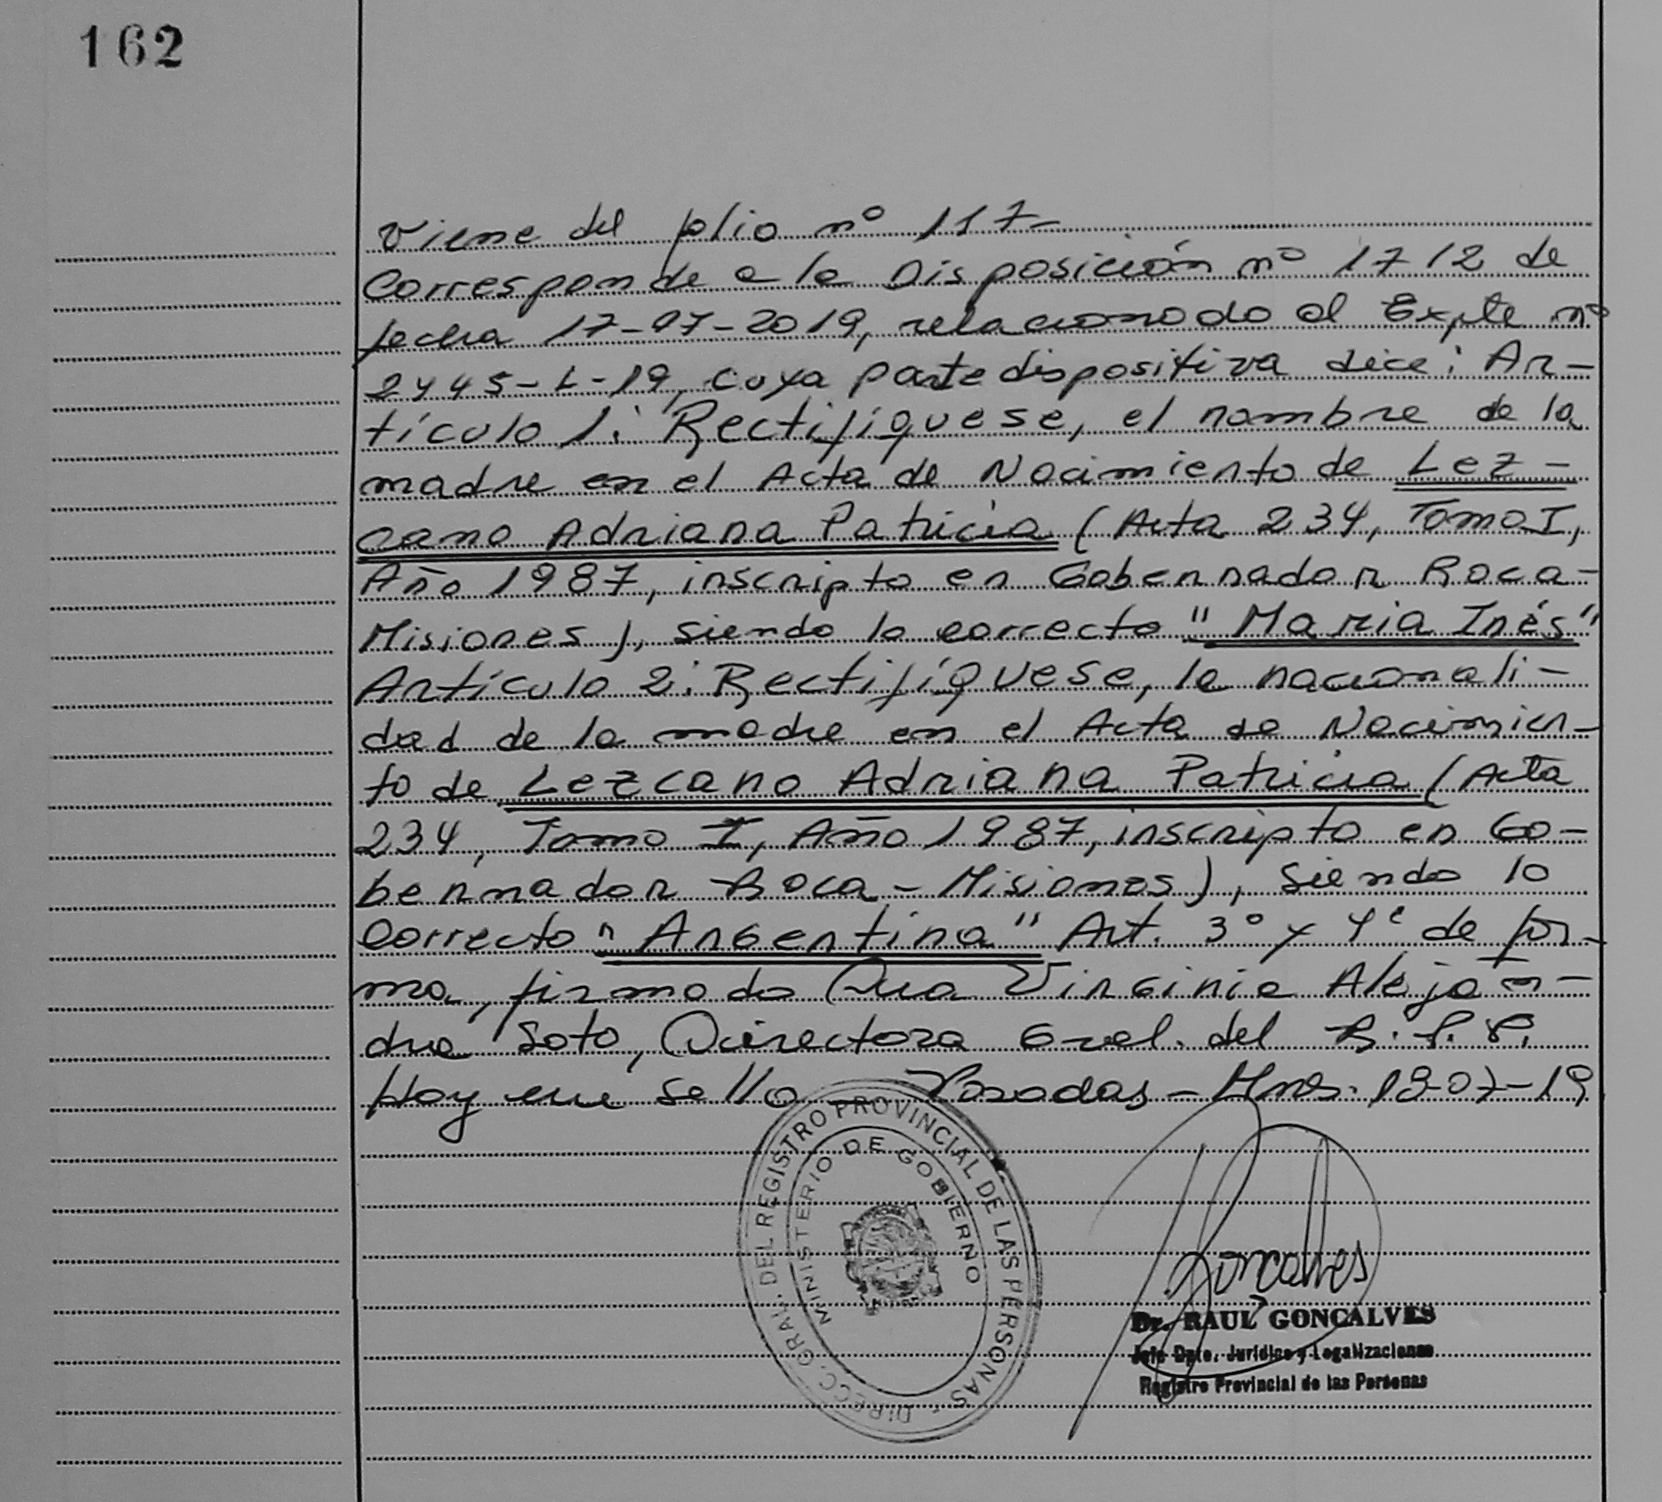 162
Viene del folio nº 117-
Corresponde a la Disposición nº 1712 de
fecha 17-07-2019, relacionado al Expte nº
2445-L-19, cuya parte dispositiva dice: Ar-
tículo 1: Rectifíquese, el nombre de la
madre en el Acta de Nacimiento de Lez-
cano Adriana Patricia (Acta 234, Tomo I,
Año 1987, inscripto en Gobernador Roca-
Misiones), siendo lo correcto "Maria Inés"
Artículo 2: Rectifíquese, la nacionali-
dad de la madre en el Acta de Nacimien-
to de Lezcano Adriana Patricia (Acta
234, Tomo I, Año 1987, inscripto en Go-
bernador Roca - Misiones), siendo lo
correcto "Argentina" Art. 3º y 4º de for-
ma, firmado Dra Virginia Alejan-
dra Soto, Directora Gral. del R.P.P.
Hoy mi sello - Posadas - Mnes. 18-07-19
DIRECC. GRAL. DEL REGISTRO PROVINCIAL DE LAS PERSONAS -
MINISTERIO DE GOBIERNO
Goncalves
Dr. RAUL GONCALVES
Jefe Dpto. Jurídico y Legalizaciones
Registro Provincial de las Personas